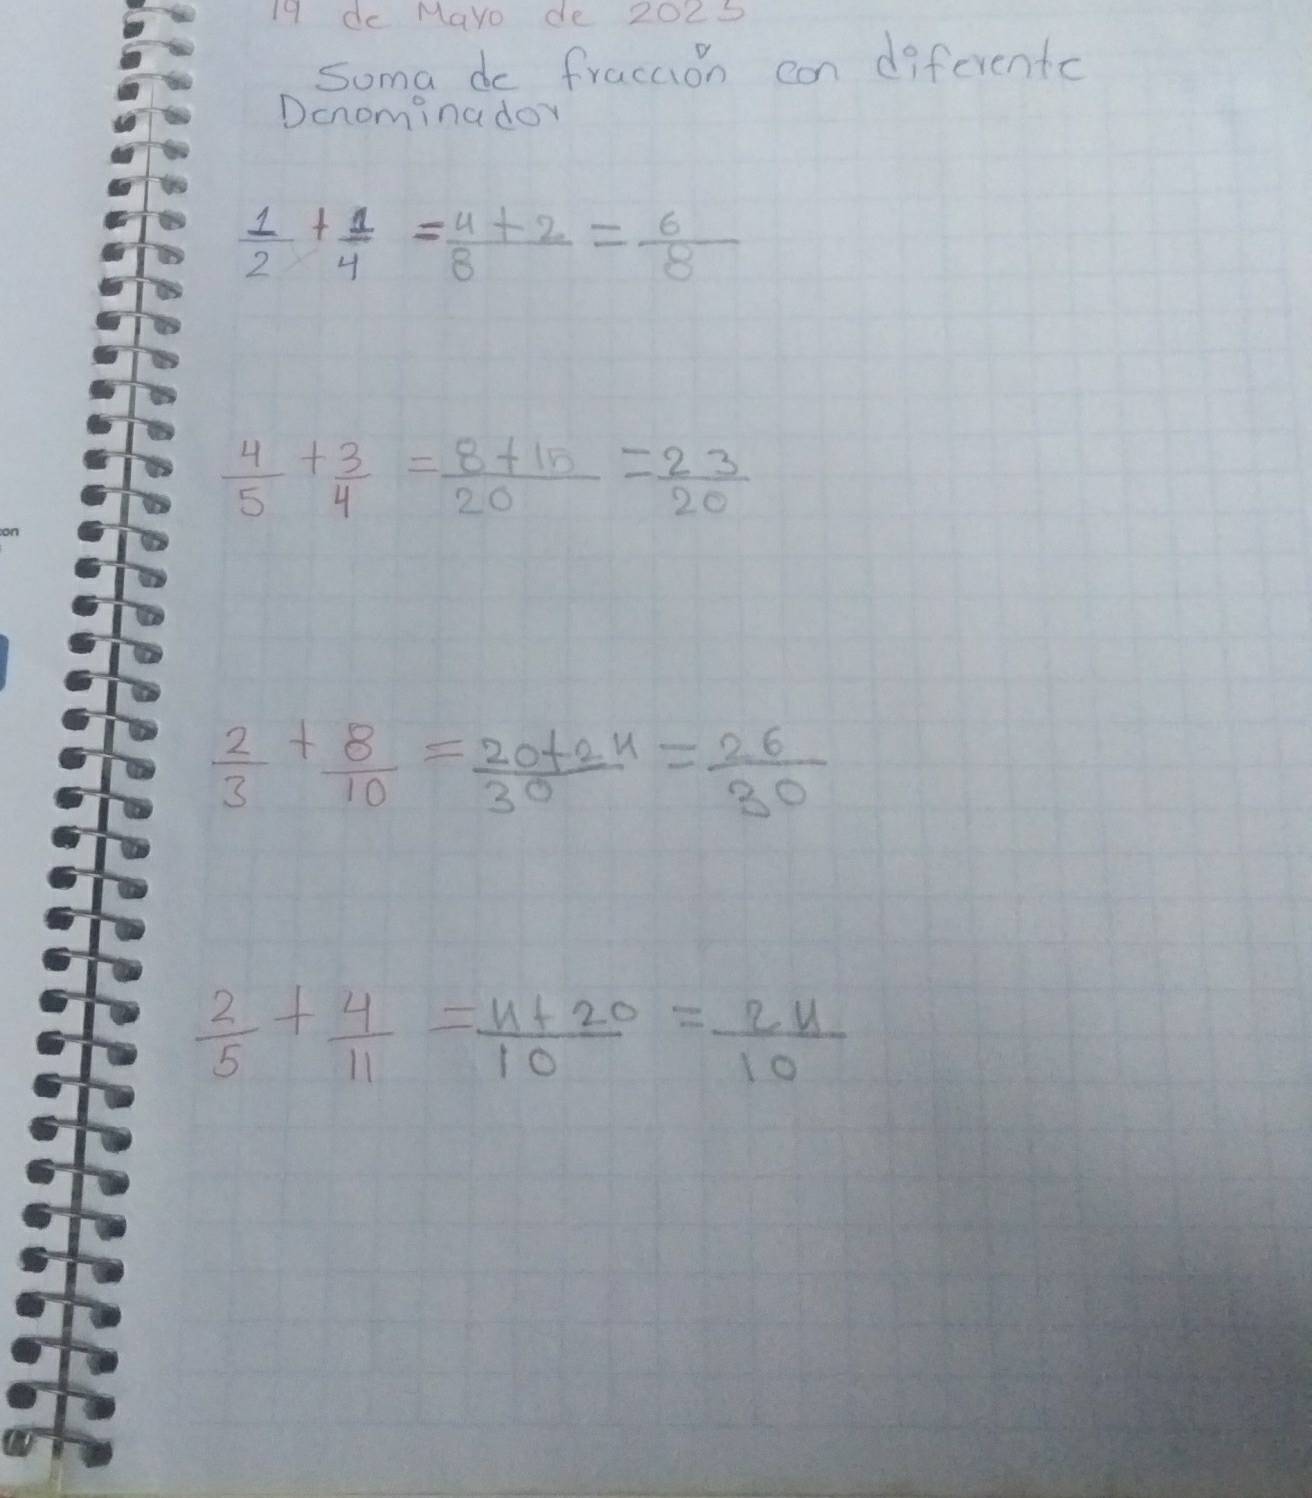 19 de Mayo de 2025
Suma de fracción con diferente
Denominador
1/2 + 1/4 = 4+2/8 = 6/8
4/5 + 3/4 = 8+15/20 = 23/20
con
2/3 + 8/10 = 20+24/30 = 26/30
2/5 + 4/11 = 4+20/10 = 24/10